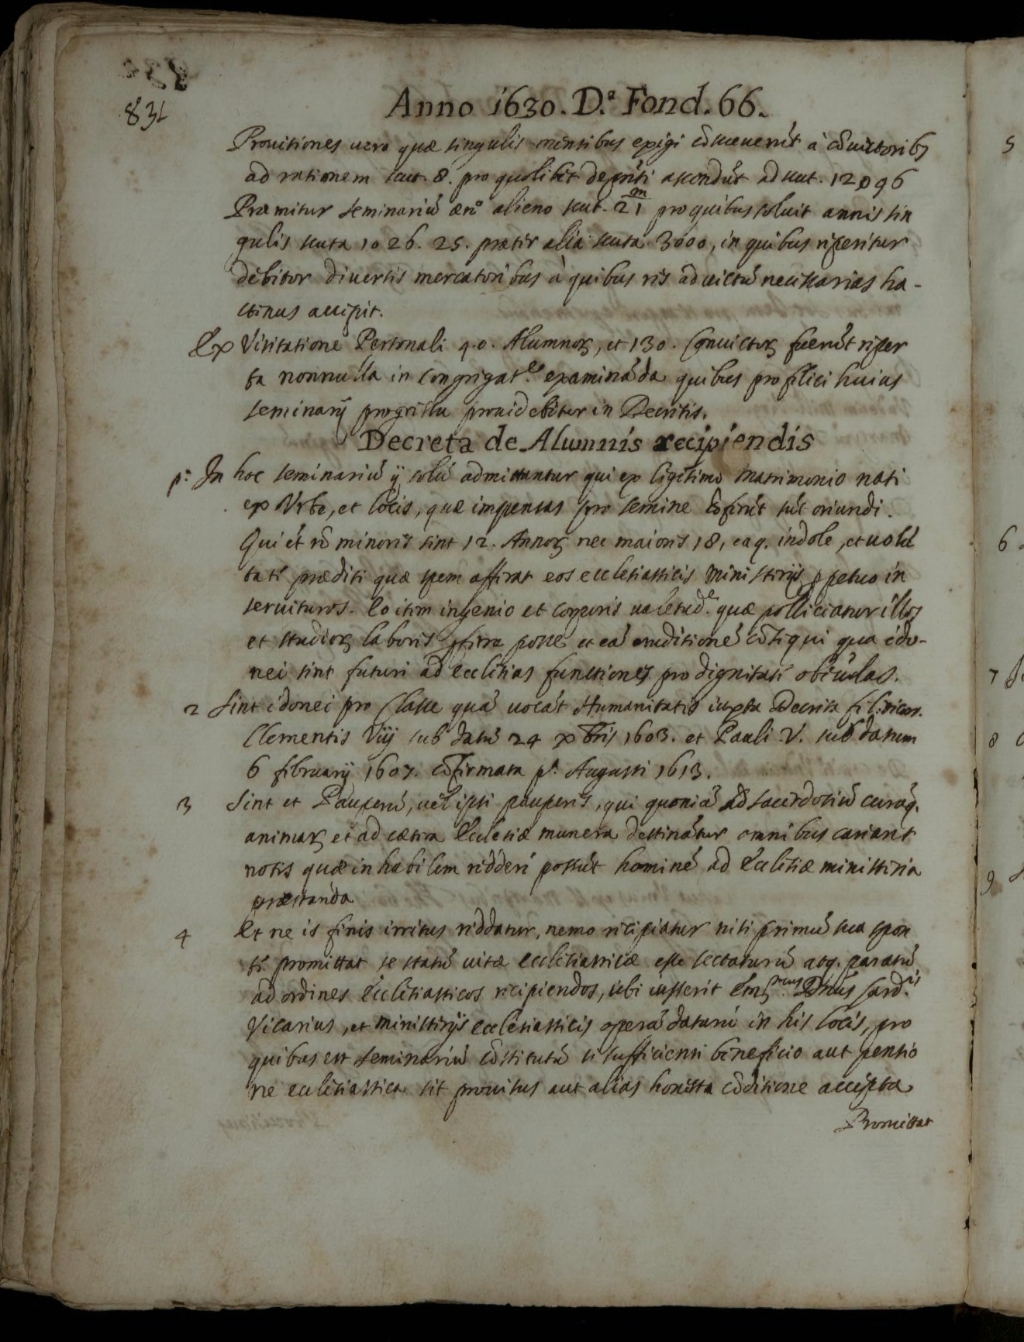 831
Anno 1630. D.ª Fond. 66.
Provitiones vero quæ singulis mensibus exigi cōsueverūt à cōvictoribꝫ
ad rationem scut. 8. pro quolibet ascendūt ad scut. 12096
Præmitur seminariū ære alieno scut. 21 pro quibus solvit annis sin
gulis scuta 1026. 25. præter alia scuta 3000, in quibus reperitur
debitor diversis mercatoribus à quibus res ad victū necessarias ha-
ctenus accipit.
Ex Visitatione Personali 40. Alumnoꝝ, et 130. Convictoꝝ fuerūt reper
ta nonnulla in Congregat.e examināda quibus pro felici huius
seminarij progressu providebitur in Decretis.
Decreta de Alumnis recipiendis
p.º In hoc seminariū ij solū admittantur qui ex legitimo matrimonio nati
ex Urbe, et locis, quæ impensas pro semine cōferūt sūt oriundi.
Qui et nō minores sint 12. Annoꝝ nec maiores 18, eaq. indole, et volū
tate præditi quæ spem afferat eos ecclesiasticis ministerijs ꝑpetuo in
servituros. Eo item ingenio et corporis valetud.e quæ polliceatur illos
et studioꝝ labores ꝑferre posse et eā eruditionē cōsequi qua ido-
nei sint futuri ad ecclesias functiones pro dignitate obeūdas.
2 Sint idonei pro Classe quā vocāt Humanitatis iuxta Decreta fel. recor.
Clementis Viij sub datū 24 xbris 1603. et Pauli V. sub datum
6 februarij 1607. cōfirmata p.ª Augusti 1613.
3 Sint et Pauperū, vel ipsi pauperes, qui quoniā ad sacerdotiū curāq.
animaꝝ et ad cætera Ecclesiæ munera destinātur omnibus careant
notis quæ inhabilem reddere possūt hominē ad Ecclesiæ ministeria
præstanda
4 Et ne is finis irritus reddatur, nemo recipiatur nisi primū sua spon
te promittat se statū vitæ ecclesiasticæ esse sectaturū atq. paratū
ad ordines Ecclesiasticos recipiendos, ubi iusserit Em.mus Dnus Card.is
Vicarius, et ministerijs ecclesiasticis operā daturū in his locis, pro
quibus est seminariū cōstitutū si sufficienti beneficio aut pensio
ne ecclesiastica sit provisus aut alias honesta cōditione accepta
Promittat
5
6
7
8
9